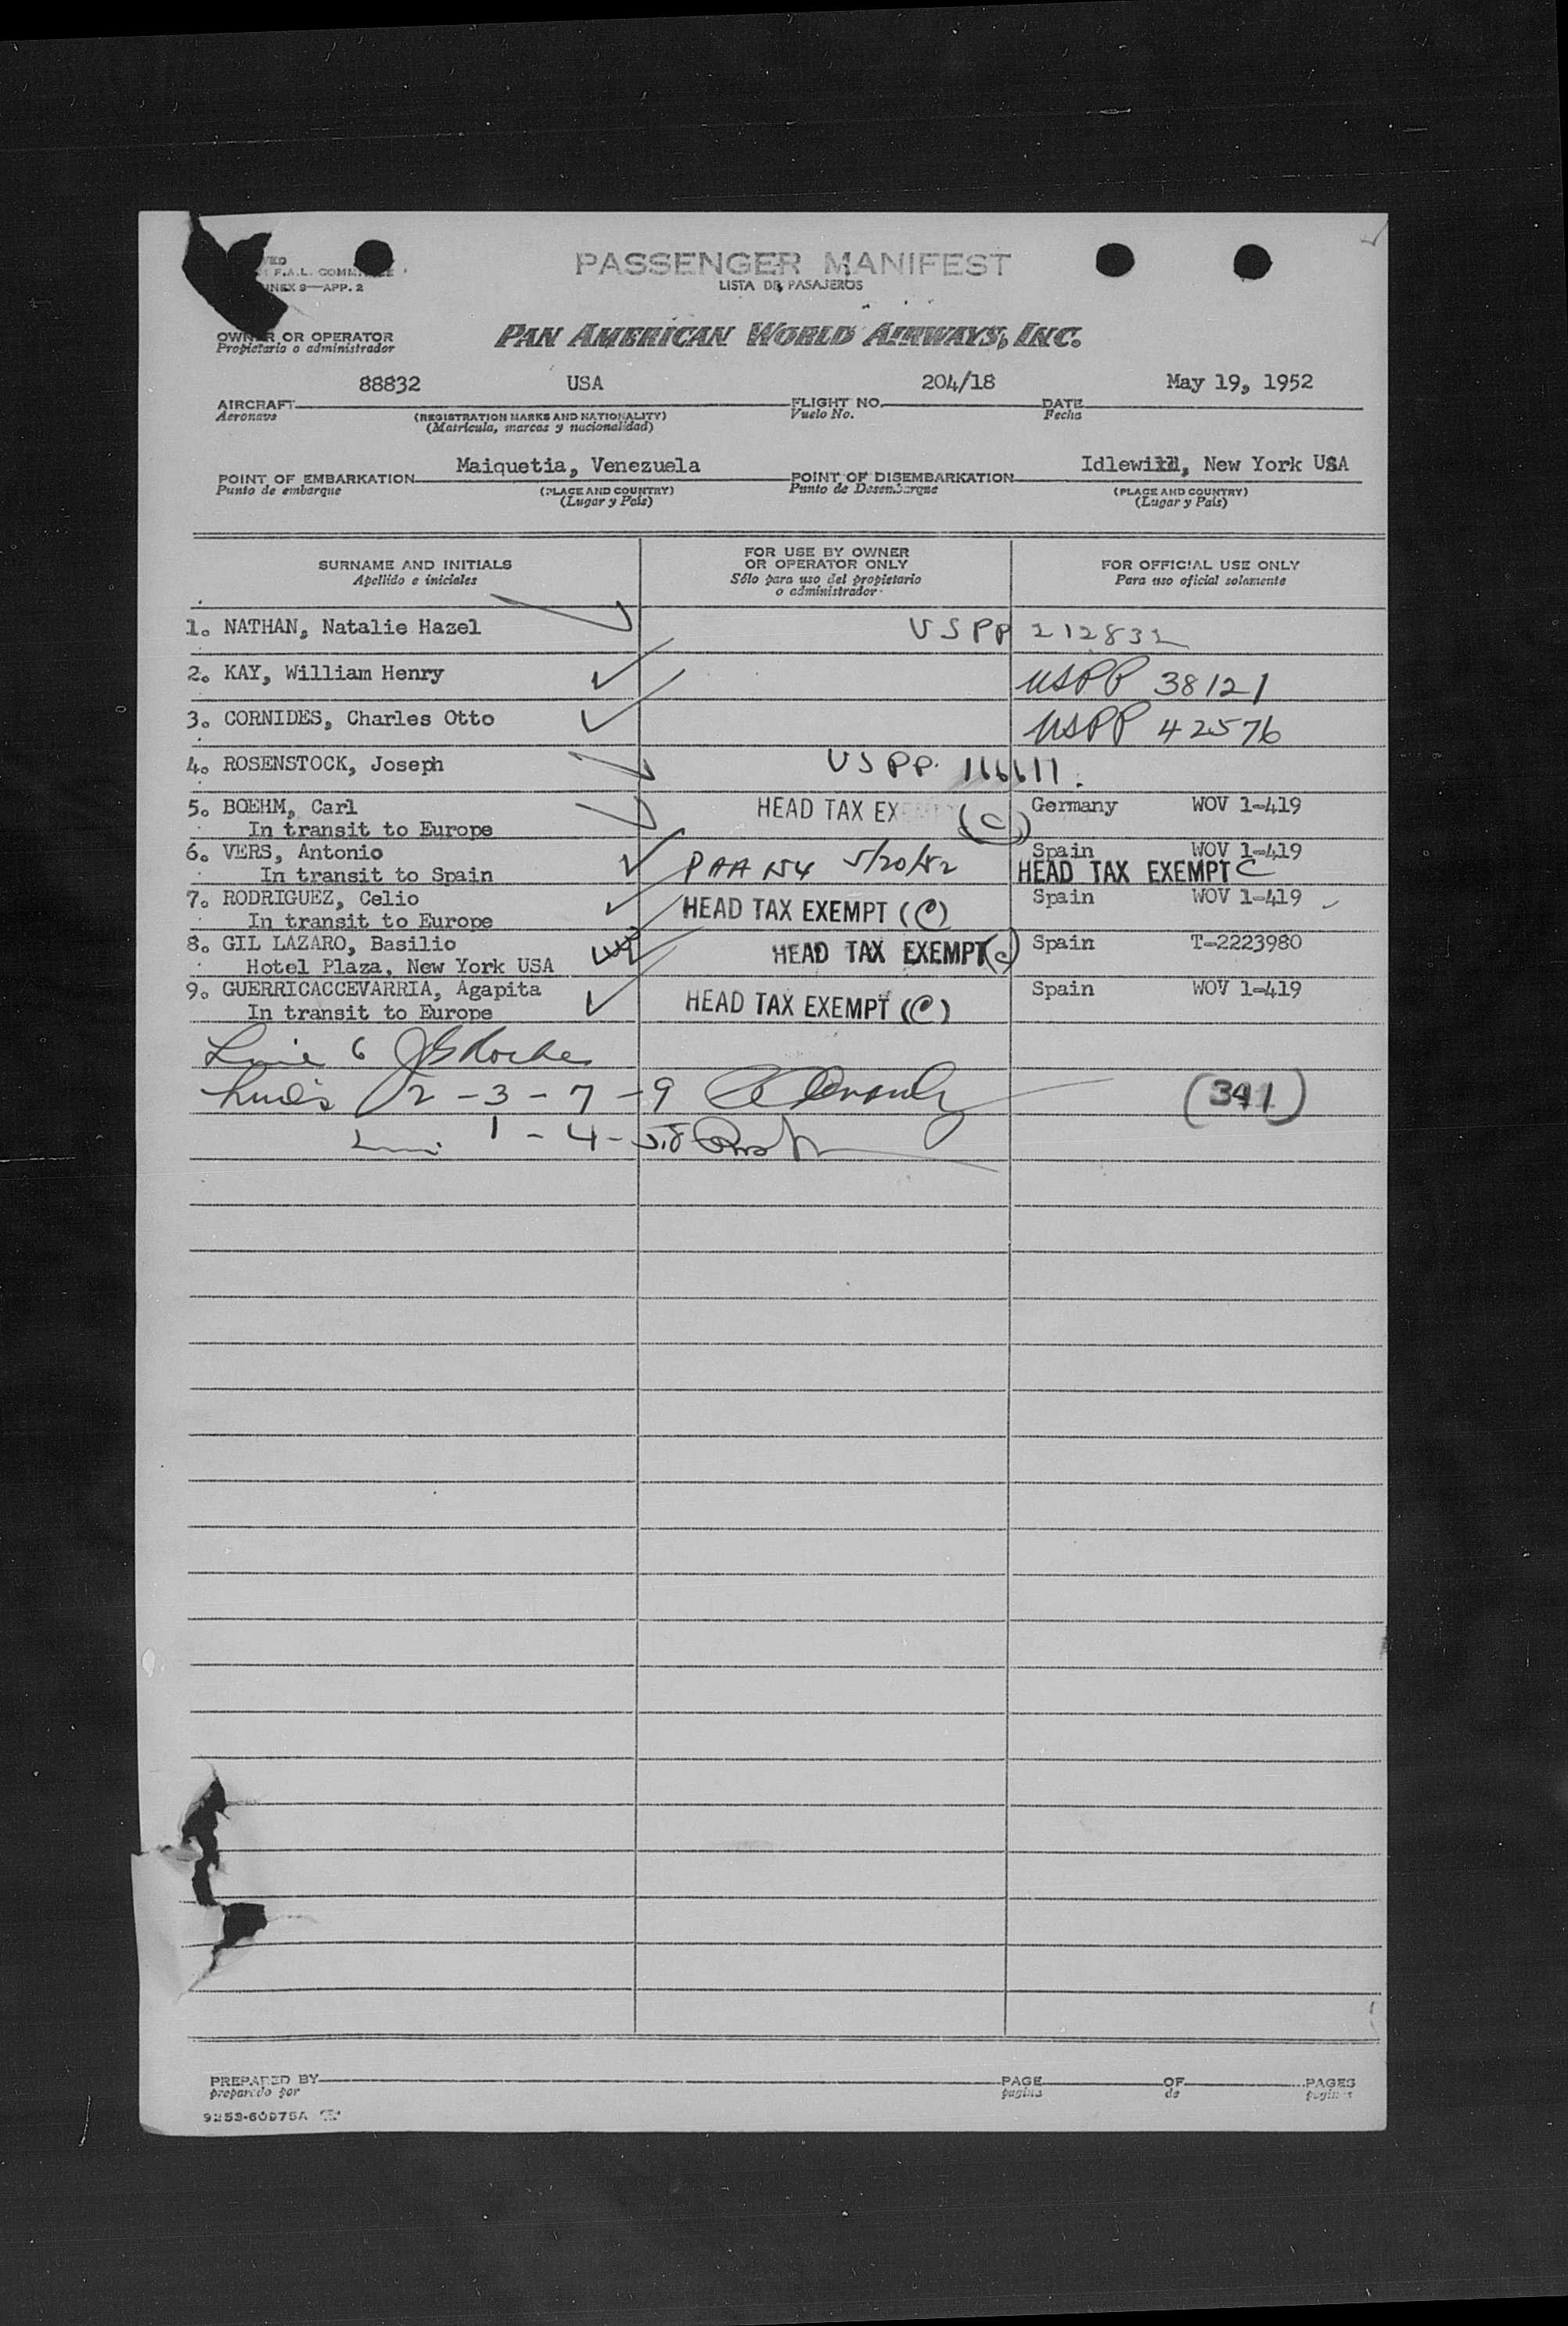 PASSENGER MANIFEST
LISTA DE PASAJEROS
F.A.L. COMMITTEE
ANNEX 9—APP. 2
OWNER OR OPERATOR
Propietario o administrador
PAN AMERICAN WORLD AIRWAYS, INC.
88832 USA 204/18 May 19, 1952
AIRCRAFT (REGISTRATION MARKS AND NATIONALITY) FLIGHT NO. DATE
Aeronave (Matrícula, marcas y nacionalidad) Vuelo No. Fecha
Maiquetia, Venezuela Idlewild, New York USA
POINT OF EMBARKATION (PLACE AND COUNTRY) POINT OF DISEMBARKATION (PLACE AND COUNTRY)
Punto de embarque (Lugar y País) Punto de Desembarque (Lugar y País)
SURNAME AND INITIALS
Apellido e iniciales
FOR USE BY OWNER
OR OPERATOR ONLY
Sólo para uso del propietario
o administrador
FOR OFFICIAL USE ONLY
Para uso oficial solamente
1. NATHAN, Natalie Hazel USPP 212832
2. KAY, William Henry USPP 38121
3. CORNIDES, Charles Otto USPP 42576
4. ROSENSTOCK, Joseph USPP. 166611.
5. BOEHM, Carl HEAD TAX EX (C) Germany WOV 1-419
In transit to Europe
6. VERS, Antonio Spain WOV 1-419
In transit to Spain PAA 154 5/20/52 HEAD TAX EXEMPT C
7. RODRIGUEZ, Celio HEAD TAX EXEMPT (C) Spain WOV 1-419
In transit to Europe
8. GIL LAZARO, Basilio HEAD TAX EXEMPT (C) Spain T-2223980
Hotel Plaza, New York USA
9. GUERRICACCEVARRIA, Agapita HEAD TAX EXEMPT (C) Spain WOV 1-419
In transit to Europe
Line 6
Lines 2 - 3 - 7 - 9 (341)
1 - 4 - 5.8
PREPARED BY PAGE OF PAGES
preparado por pagina de paginas
9253-60975A